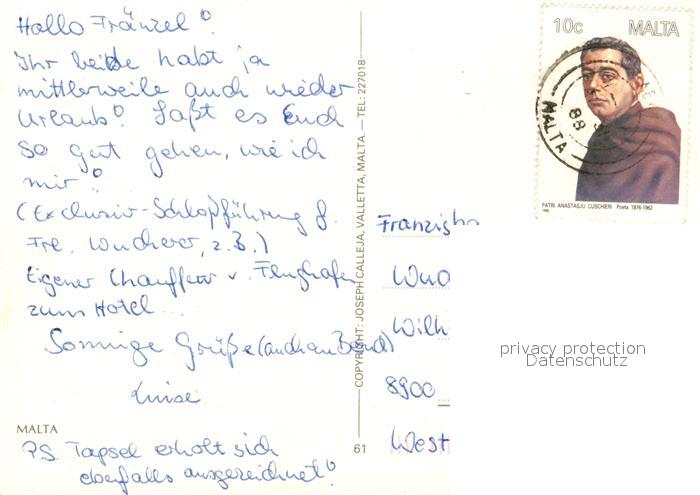 Hallo Fränzel!
Ihr beide habt ja
mittlerweile auch wieder
Urlaub! Laßt es Euch
so gut gehen, wie ich
mir!
(Exclusiv-Schloßführung f.
Fre. Wucherer, z.B.)
Eigener Chauffeur v. Flughafen
zum Hotel...
Sonnige Grüße (auch an Bernd)
Luise
MALTA
P.S. Tapsel erholt sich
ebenfalls ausgezeichnet!
COPYRIGHT: JOSEPH CALLEJA, VALLETTA, MALTA. — TEL: 227018
61
10c MALTA
MALTA
88
PATRI ANASTASJU CUSCHIERI Poeta 1876-1962
Franzisk
Wuc
Wilh
8900
West
privacy protection
Datenschutz